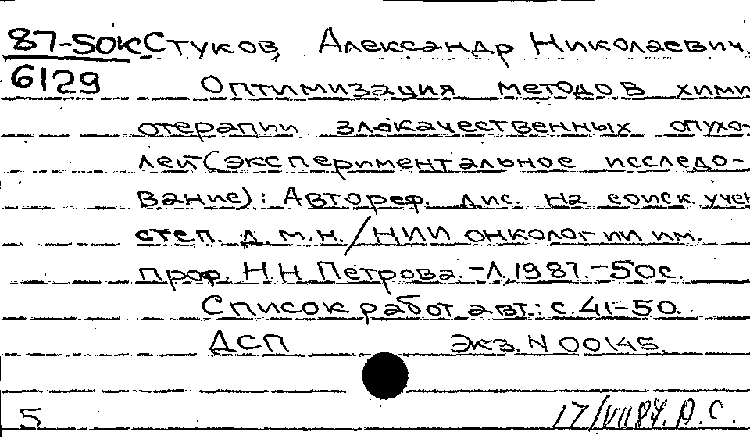 87-50к Стуков, Александр Николаевич.
6129 Оптимизация методов хими
отерапии злокачественных опухо-
лей (экспериментальное исследо-
вание): Автореф. дис. на соиск. учен
степ. д. м. н. / НИИ онкологии им.
проф. Н.Н. Петрова. - Л., 1987. - 50 с.
Список работ авт.: с. 41-50.
ДСП Экз. N 00145.
5 17/VII 87. А. С.